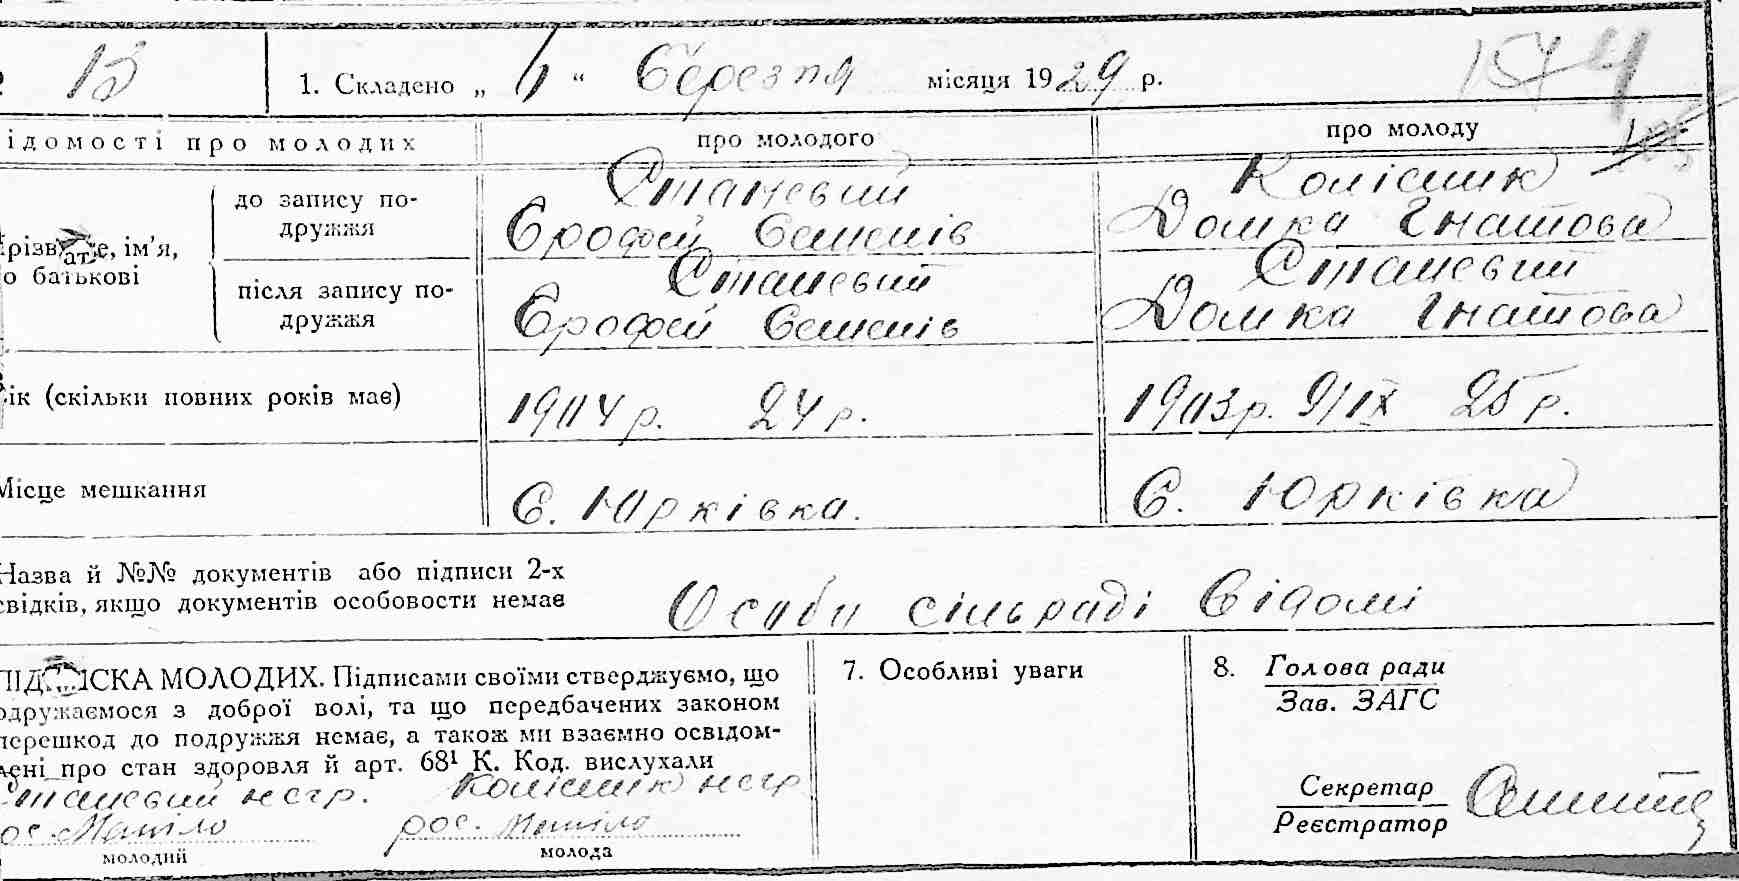 13 1. Складено „ 6 “ Березня місяця 1929 р. 154
ідомості про молодих про молодого про молоду
до запису по-
дружжя
Станевий Колісник
Єрофей Семенів Домка Гнатова
різв ще, ім’я,
о батькові
після запису по-
дружжя
Станевий Станевий
Єрофей Семенів Домка Гнатова
ік (скільки повних років має) 1904 р. 24 р. 1903 р. 9/IX 25 р.
Місце мешкання С. Юрківка. С. Юрківка
Назва й №№ документів або підписи 2-х
свідків, якщо документів особовости немає
Особи сільраді відомі
ПІДПИСКА МОЛОДИХ. Підписами своїми стверджуємо, що
одружаємося з доброї волі, та що передбачених законом
перешкод до подружжя немає, а також ми взаємно освідом-
лені про стан здоров'я й арт. 68¹ К. Код. вислухали
Станевий негр. Колісник негр
рос. рос.
молодий молода
7. Особливі уваги
8. Голова ради
Зав. ЗАГС
Секретар
Реєстратор